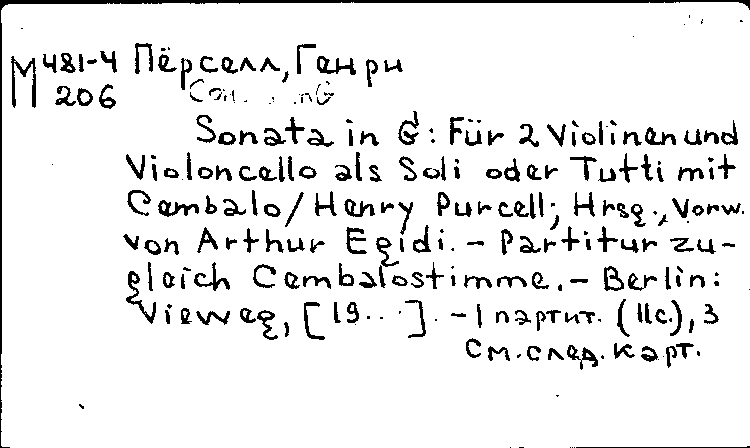 М 481-4 Пёрселл, Генри
206 Сон. in G
Sonata in G: Für 2 Violinen und
Violoncello als Soli oder Tutti mit
Cembalo / Henry Purcell; Hrsg., Vorw.
von Arthur Egidi. - Partitur zu-
gleich Cembalostimme. - Berlin:
Vieweg, [19...]. - 1 партит. (11 с.), 3
См. след. карт.